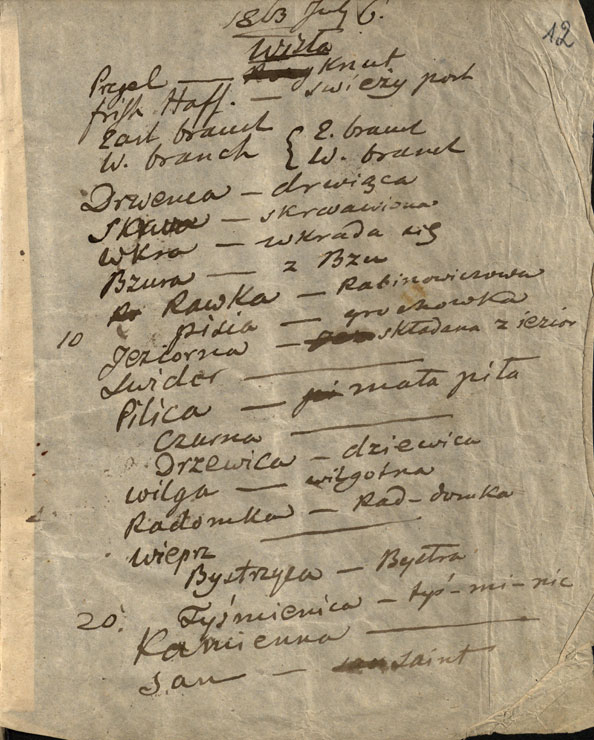 1863 July 6.
12
Wisła
Pregel — Knut
frish. Haff. — świeży port
East branch { E. branch
W. branch { W. branch
Drwenca — drwiąca
Skawa — skrwawiona
Wkra — wkrada się
Bzura — z Bzu
Rawka — Rabinowiczowa
10 pisia — grochowka
Jeziorna — składana z iezior
Swider —
Pilica — mała piła
Czarna —
Drzewica — dziewica
wilga — wilgotna
Radomka — Rad-domka
Wieprz —
Bystrzyca — Bystra
20. Tyśmienica — tyś-mi-nic
Kamienna —
San — saint